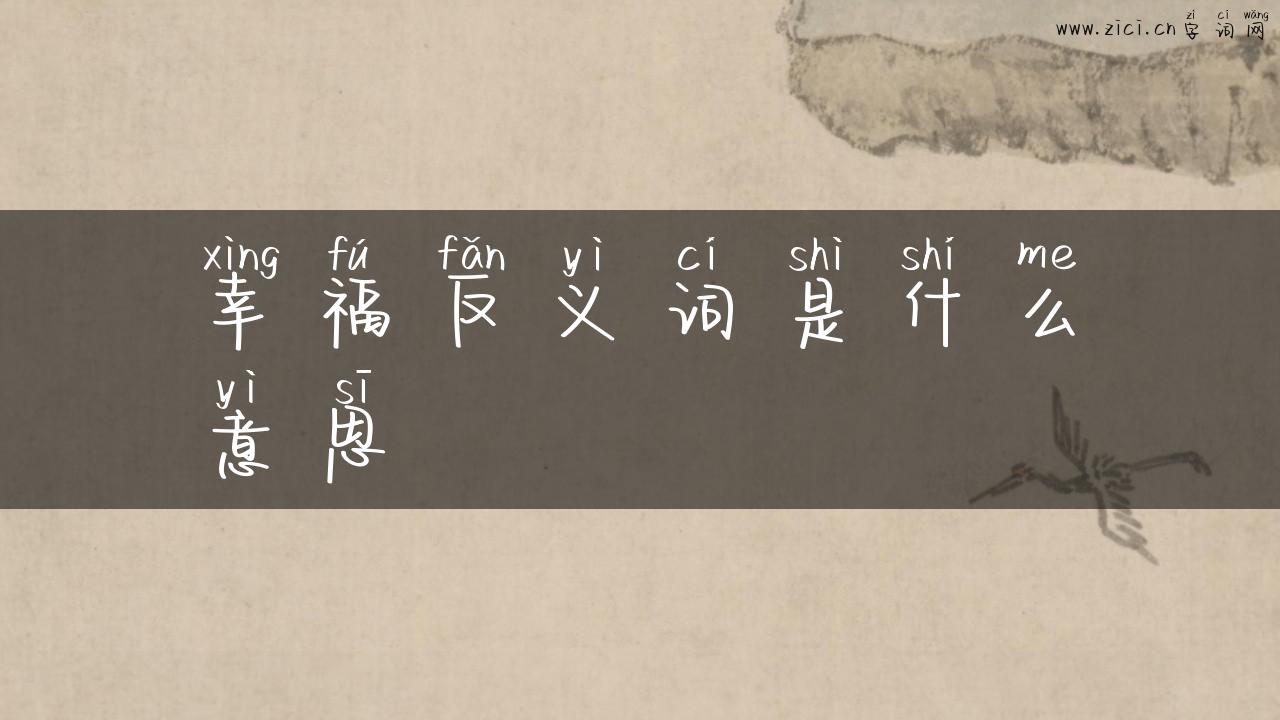 zì cí wǎng
www.zici.cn 字词网
xìng fú fǎn yì cí shì shí me
幸福反义词是什么
yì sī
意思